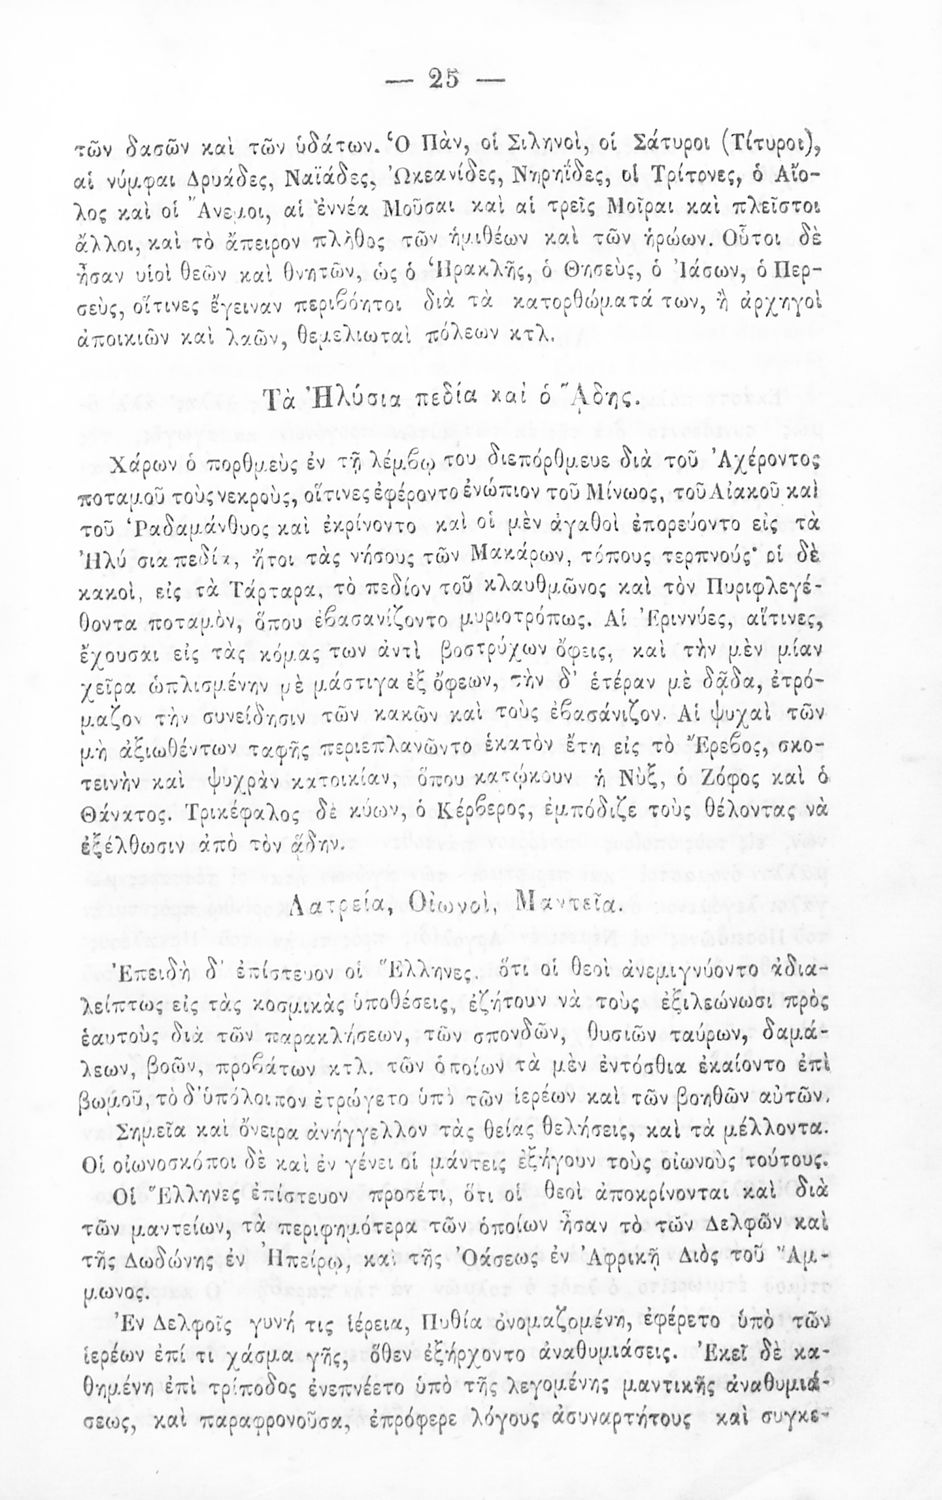 — 25 —
τῶν δασῶν καὶ τῶν ὑδάτων. Ὁ Πὰν, οἱ Σιληνοὶ, οἱ Σάτυροι (Τίτυροι),
αἱ νύμφαι Δρυάδες, Ναϊάδες, Ὠκεανίδες, Νηρηΐδες, οἱ Τρίτονες, ὁ Αἴο-
λος καὶ οἱ Ἄνεμοι, αἱ ἐννέα Μοῦσαι καὶ αἱ τρεῖς Μοῖραι καὶ πλεῖστοι
ἄλλοι, καὶ τὸ ἄπειρον πλῆθος τῶν ἡμιθέων καὶ τῶν ἡρώων. Οὗτοι δὲ
ἦσαν υἱοὶ θεῶν καὶ θνητῶν, ὡς ὁ Ἡρακλῆς, ὁ Θησεὺς, ὁ Ἰάσων, ὁ Περ-
σεὺς, οἵτινες ἔγειναν περιβόητοι διὰ τὰ κατορθώματά των, ἢ ἀρχηγοὶ
ἀποικιῶν καὶ λαῶν, θεμελιωταὶ πόλεων κτλ.
Τὰ Ἠλύσια πεδία καὶ ὁ ᾍδης.
Χάρων ὁ πορθμεὺς ἐν τῇ λέμβῳ του διεπόρθμευε διὰ τοῦ Ἀχέροντος
ποταμοῦ τοὺς νεκροὺς, οἵτινες ἐφέροντο ἐνώπιον τοῦ Μίνωος, τοῦ Αἰακοῦ καὶ
τοῦ Ῥαδαμάνθυος καὶ ἐκρίνοντο καὶ οἱ μὲν ἀγαθοὶ ἐπορεύοντο εἰς τὰ
Ἠλύσια πεδία, ἤτοι τὰς νήσους τῶν Μακάρων, τόπους τερπνούς· οἱ δὲ
κακοὶ, εἰς τὰ Τάρταρα, τὸ πεδίον τοῦ κλαυθμῶνος καὶ τὸν Πυριφλεγέ-
θοντα ποταμὸν, ὅπου ἐβασανίζοντο μυριοτρόπως. Αἱ Ἐριννύες, αἵτινες,
ἔχουσαι εἰς τὰς κόμας των ἀντὶ βοστρύχων ὄφεις, καὶ τὴν μὲν μίαν
χεῖρα ὡπλισμένην μὲ μάστιγα ἐξ ὄφεων, τὴν δ' ἑτέραν μὲ δᾷδα, ἐτρό-
μαζον τὴν συνείδησιν τῶν κακῶν καὶ τοὺς ἐβασάνιζον. Αἱ ψυχαὶ τῶν
μὴ ἀξιωθέντων ταφῆς περιεπλανῶντο ἑκατὸν ἔτη εἰς τὸ Ἔρεβος, σκο-
τεινὴν καὶ ψυχρὰν κατοικίαν, ὅπου κατῴκουν ἡ Νὺξ, ὁ Ζόφος καὶ ὁ
Θάνατος. Τρικέφαλος δὲ κύων, ὁ Κέρβερος, ἐμπόδιζε τοὺς θέλοντας νὰ
ἐξέλθωσιν ἀπὸ τὸν ᾅδην.
Λατρεία, Οἰωνοὶ, Μαντεῖα.
Ἐπειδὴ δ' ἐπίστευον οἱ Ἕλληνες, ὅτι οἱ θεοὶ ἀνεμιγνύοντο ἀδια-
λείπτως εἰς τὰς κοσμικὰς ὑποθέσεις, ἐζήτουν νὰ τοὺς ἐξιλεώνωσι πρὸς
ἑαυτοὺς διὰ τῶν παρακλήσεων, τῶν σπονδῶν, θυσιῶν ταύρων, δαμά-
λεων, βοῶν, προβάτων κτλ. τῶν ὁποίων τὰ μὲν ἐντόσθια ἐκαίοντο ἐπὶ
βωμοῦ, τὸ δ' ὑπόλοιπον ἐτρώγετο ὑπὸ τῶν ἱερέων καὶ τῶν βοηθῶν αὐτῶν.
Σημεῖα καὶ ὄνειρα ἀνήγγελλον τὰς θείας θελήσεις, καὶ τὰ μέλλοντα.
Οἱ οἰωνοσκόποι δὲ καὶ ἐν γένει οἱ μάντεις ἐξήγουν τοὺς οἰωνοὺς τούτους.
Οἱ Ἕλληνες ἐπίστευον προσέτι, ὅτι οἱ θεοὶ ἀποκρίνονται καὶ διὰ
τῶν μαντείων, τὰ περιφημότερα τῶν ὁποίων ἦσαν τὸ τῶν Δελφῶν καὶ
τῆς Δωδώνης ἐν Ἠπείρῳ, καὶ τῆς Ὀάσεως ἐν Ἀφρικῇ Διὸς τοῦ Ἄμ-
μωνος.
Ἐν Δελφοῖς γυνή τις ἱέρεια, Πυθία ὀνομαζομένη, ἐφέρετο ὑπὸ τῶν
ἱερέων ἐπί τι χάσμα γῆς, ὅθεν ἐξήρχοντο ἀναθυμιάσεις. Ἐκεῖ δὲ κα-
θημένη ἐπὶ τρίποδος ἐνεπνέετο ὑπὸ τῆς λεγομένης μαντικῆς ἀναθυμιά-
σεως, καὶ παραφρονοῦσα, ἐπρόφερε λόγους ἀσυναρτήτους καὶ συγκε-